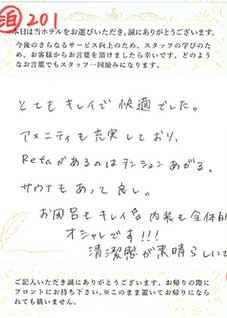 泊 201
本日は当ホテルをお選びいただき、誠にありがとうございます。
今後のさらなるサービス向上のため、スタッフの学びのため、お客様からお言葉を頂けましたら幸いです。どのようなお言葉でもスタッフ一同励みになります。
とてもキレイで快適でした。
アメニティも充実しており、
Refaがあるのはテンションあがる。
サウナもあって良し。
お風呂もキレイ 内装も全体的
オシャレです!!!
清潔感が素晴らしい
ご記入いただき誠にありがとうございます。お帰りの際に
フロントにお持ち下さい。※このまま置いてお帰りになられても構いません。